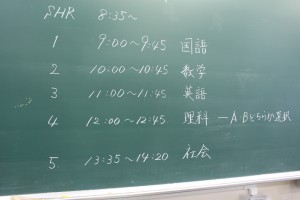 SHR 8:35~
1 9:00~9:45 国語
2 10:00~10:45 数学
3 11:00~11:45 英語
4 12:00~12:45 理科 ーA・Bどちらか選択
5 13:35~14:20 社会